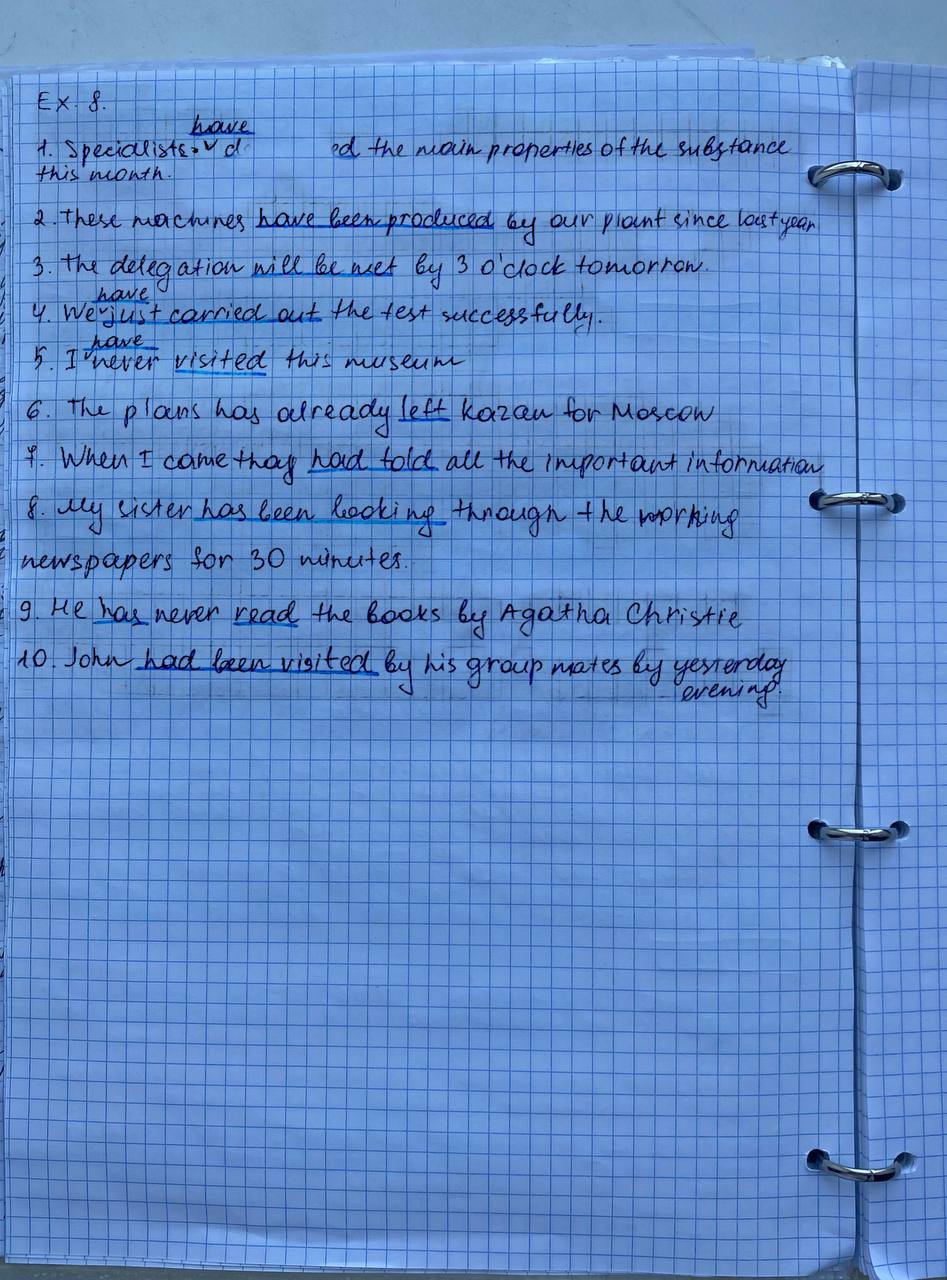 Ex. 8.
have
1. Specialists d ed the main properties of the substance
this month.
2. These machines have been produced by our plant since last year
3. The delegation will be met by 3 o'clock tomorrow.
have
4. We just carried out the test successfully.
have
5. I never visited this museum
6. The plans has already left Kazan for Moscow
7. When I came thay had told all the important information
8. My sister has been looking through the morking
newspapers for 30 minutes.
9. He has never read the books by Agatha Christie
10. John had been visited by his group mates by yesterday
evening.